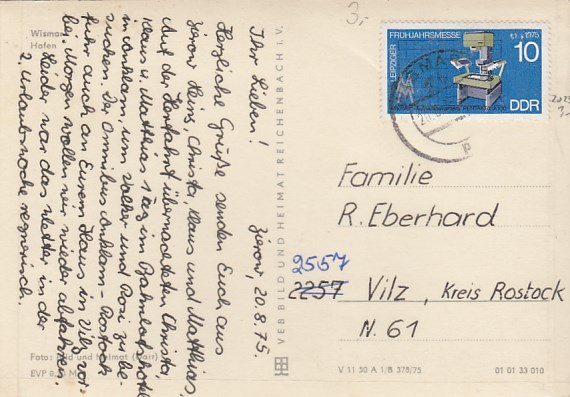 Wismar
Hafen
Ihr Lieben! Zierow, 20.8.75.
Herzliche Grüße senden Euch aus
Zierow Heinz, Christa, Klaus und Matthias.
Auf der Herfahrt übernachteten Christa,
Klaus u. Matthias 1 Tag im Bahnhofshotel
in Anklam, um Volker und Rosi zu be-
suchen. Der Omnibus Anklam - Rostock
fuhr auch an Eurem Haus in Vilz vor-
bei. Morgen wollen wir wieder abfahren.
Leider war das Wetter in der
2. Urlaubswoche regnerisch.
Foto: Bild und Heimat (Darr)
EVP 0,20 M
VEB BILD UND HEIMAT REICHENBACH i. V.
3,-
LEIPZIGER FRÜHJAHRSMESSE 1975
10
DDR
Familie
R. Eberhard
2557
2257 Vilz, Kreis Rostock
N. 61
V 11 50 A 1/B 378/75
01 01 33 010